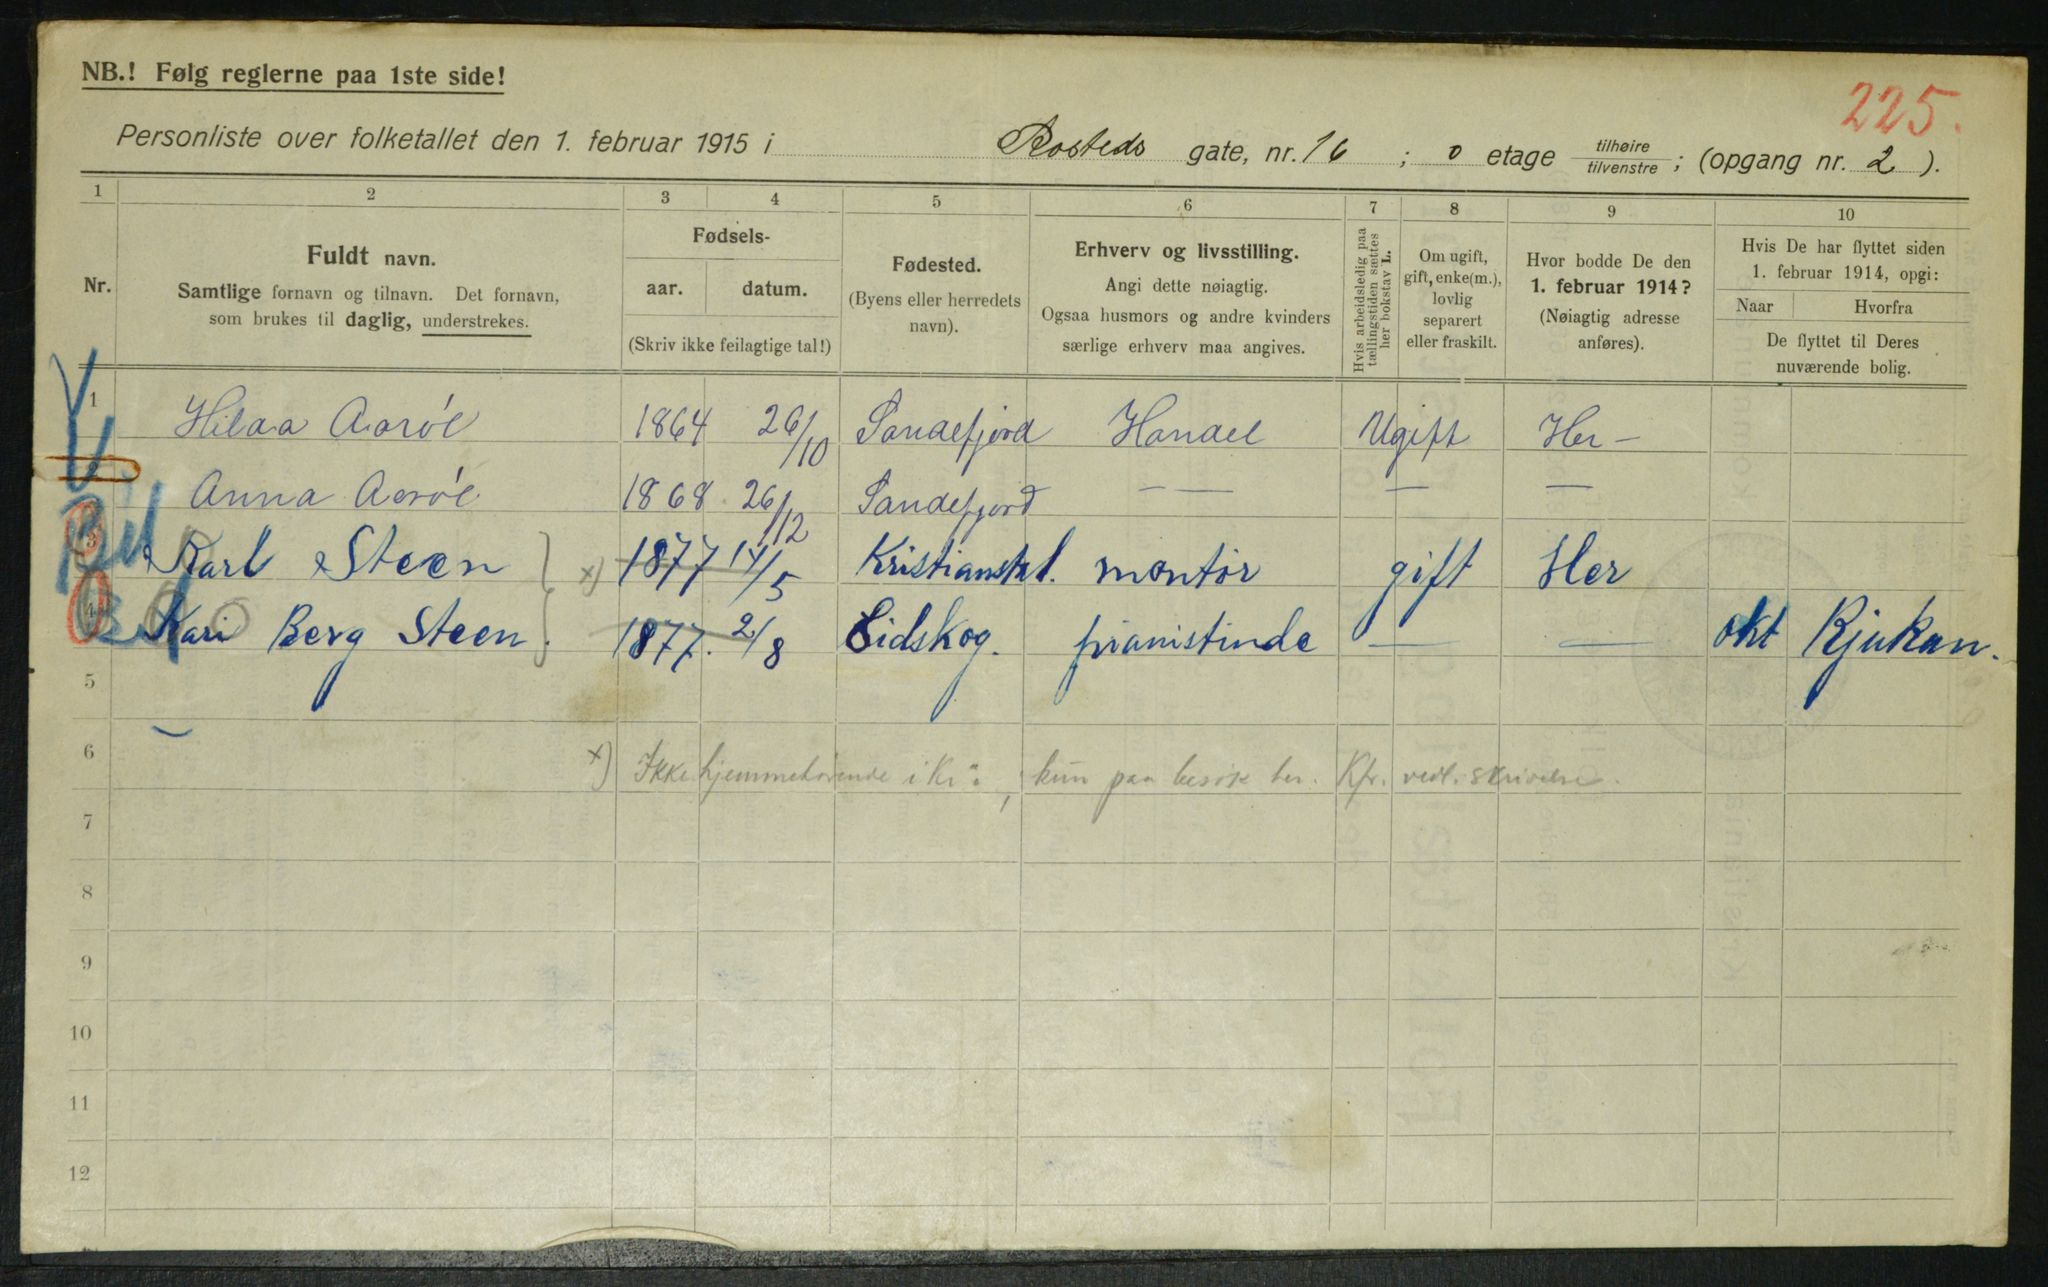 NB.! Følg reglerne paa 1ste side!
225.
Personliste over folketallet den 1. februar 1915 i Rosteds gate, nr. 16 ; 0 etage tilhøire / tilvenstre ; (opgang nr. 2 ).
1 2 3 4 5 6 7 8 9 10
Nr.
Fuldt navn.
Samtlige fornavn og tilnavn. Det fornavn,
som brukes til daglig, understrekes.
Fødsels-
aar. datum.
(Skriv ikke feilagtige tal!)
Fødested.
(Byens eller herredets
navn).
Erhverv og livsstilling.
Angi dette nøiagtig.
Ogsaa husmors og andre kvinders
særlige erhverv maa angives.
Hvis arbeidsledig paa
tællingstiden sættes
her bokstav L.
Om ugift,
gift, enke(m.),
lovlig
separert
eller fraskilt.
Hvor bodde De den
1. februar 1914?
(Nøiagtig adresse
anføres).
Hvis De har flyttet siden
1. februar 1914, opgi:
Naar Hvorfra
De flyttet til Deres
nuværende bolig.
1 Hilda Aarøe 1864 26/10 Sandefjord Handel Ugift Her —
2 Anna Aarøe 1868 26/12 Sandefjord — — — —
3 Karl Steen } x) 1877 14/5 Kristianstd. montør gift Her
4 Kari Berg Steen. } 1877. 2/8 Eidskog. pianistinde — — okt Rjukan.
5
6 x) Ikke hjemmehørende i Kr.a, kun paa besøk her. Kfr. vedl. skrivelse.
7
8
9
10
11
12